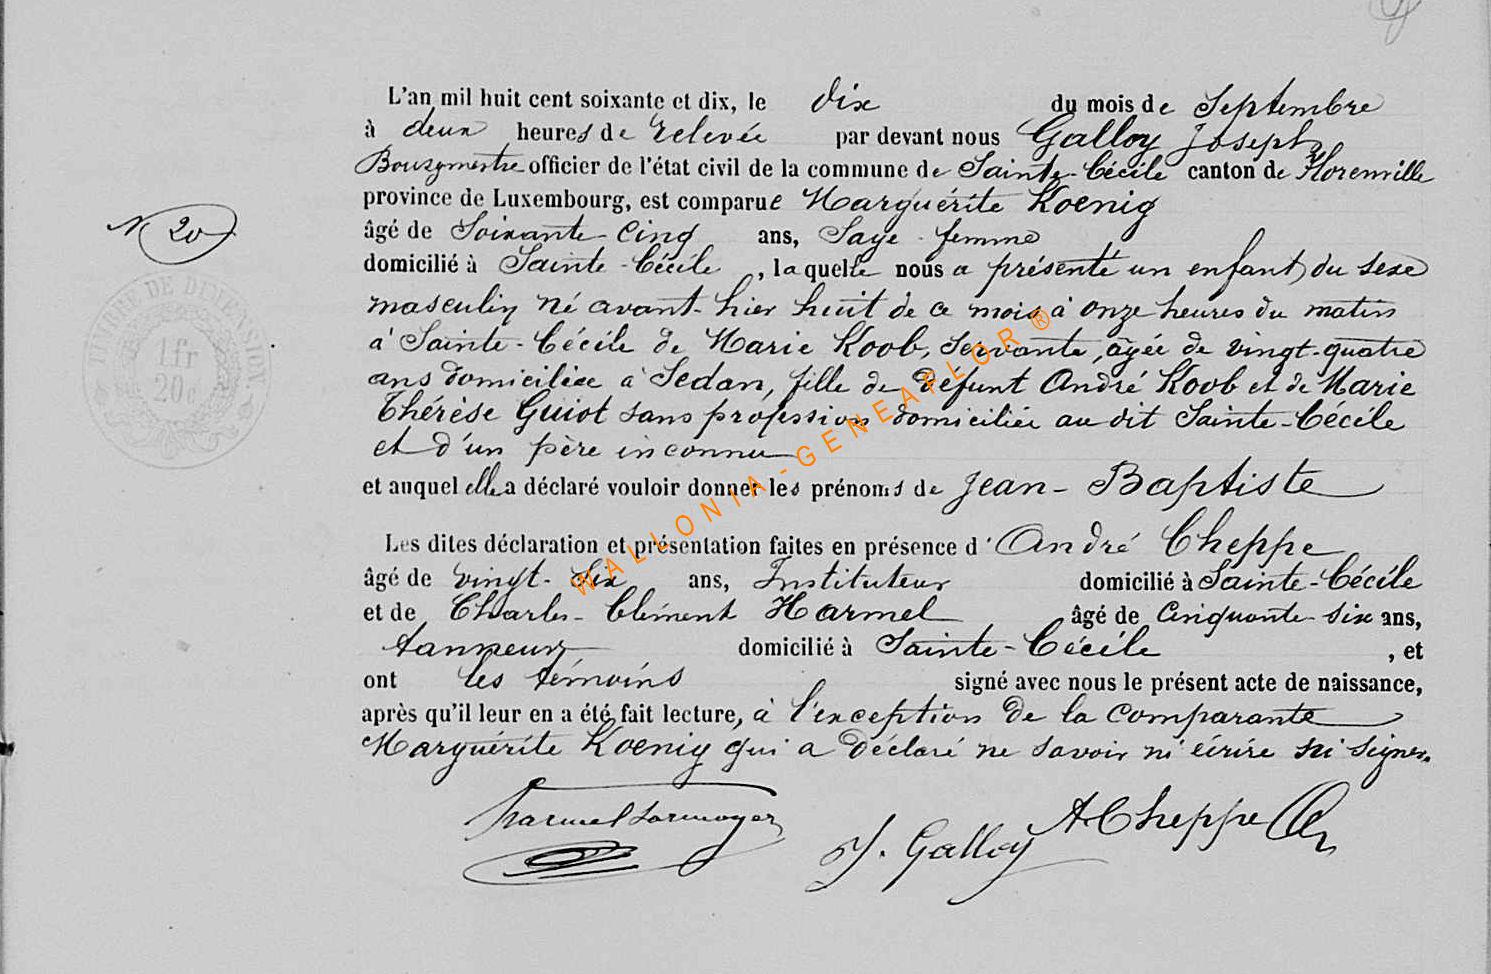 L'an mil huit cent soixante et dix, le dix du mois de Septembre
à deux heures de relevée par devant nous Galloy Joseph
Bourgmestre officier de l'état civil de la commune de Sainte-Cécile canton de Florenville
province de Luxembourg, est comparue Marguérite Koenig
âgé de Soixante-Cinq ans, Sage-femme
N 20
domicilié à Sainte-Cécile, laquelle nous a présenté un enfant du sexe
masculin né avant-hier huit de ce mois à onze heures du matin
à Sainte-Cécile de Marie Koob, Servante, agée de vingt-quatre
ans domiciliée à Sedan, fille de défunt André Koob et de Marie
Thérèse Guiot sans profession domiciliée au dit Sainte-Cécile
et d'un père inconnu
et auquel elle a déclaré vouloir donner les prénoms de Jean-Baptiste
Les dites déclaration et présentation faites en présence d'André Cheppe
âgé de vingt-six ans, Instituteur domicilié à Sainte-Cécile
et de Charles-Clément Harmel âgé de Cinquante-six ans,
tanneur domicilié à Sainte-Cécile, et
ont les témoins signé avec nous le présent acte de naissance,
après qu'il leur en a été fait lecture, à l'exception de la Comparante
Marguérite Koenig qui a déclaré ne savoir ni écrire ni signer.
A Cheppe
J. Galloy
TIMBRE DE DIMENSION.
1 fr
20 c
WALLONIA-GENEAPLOR®